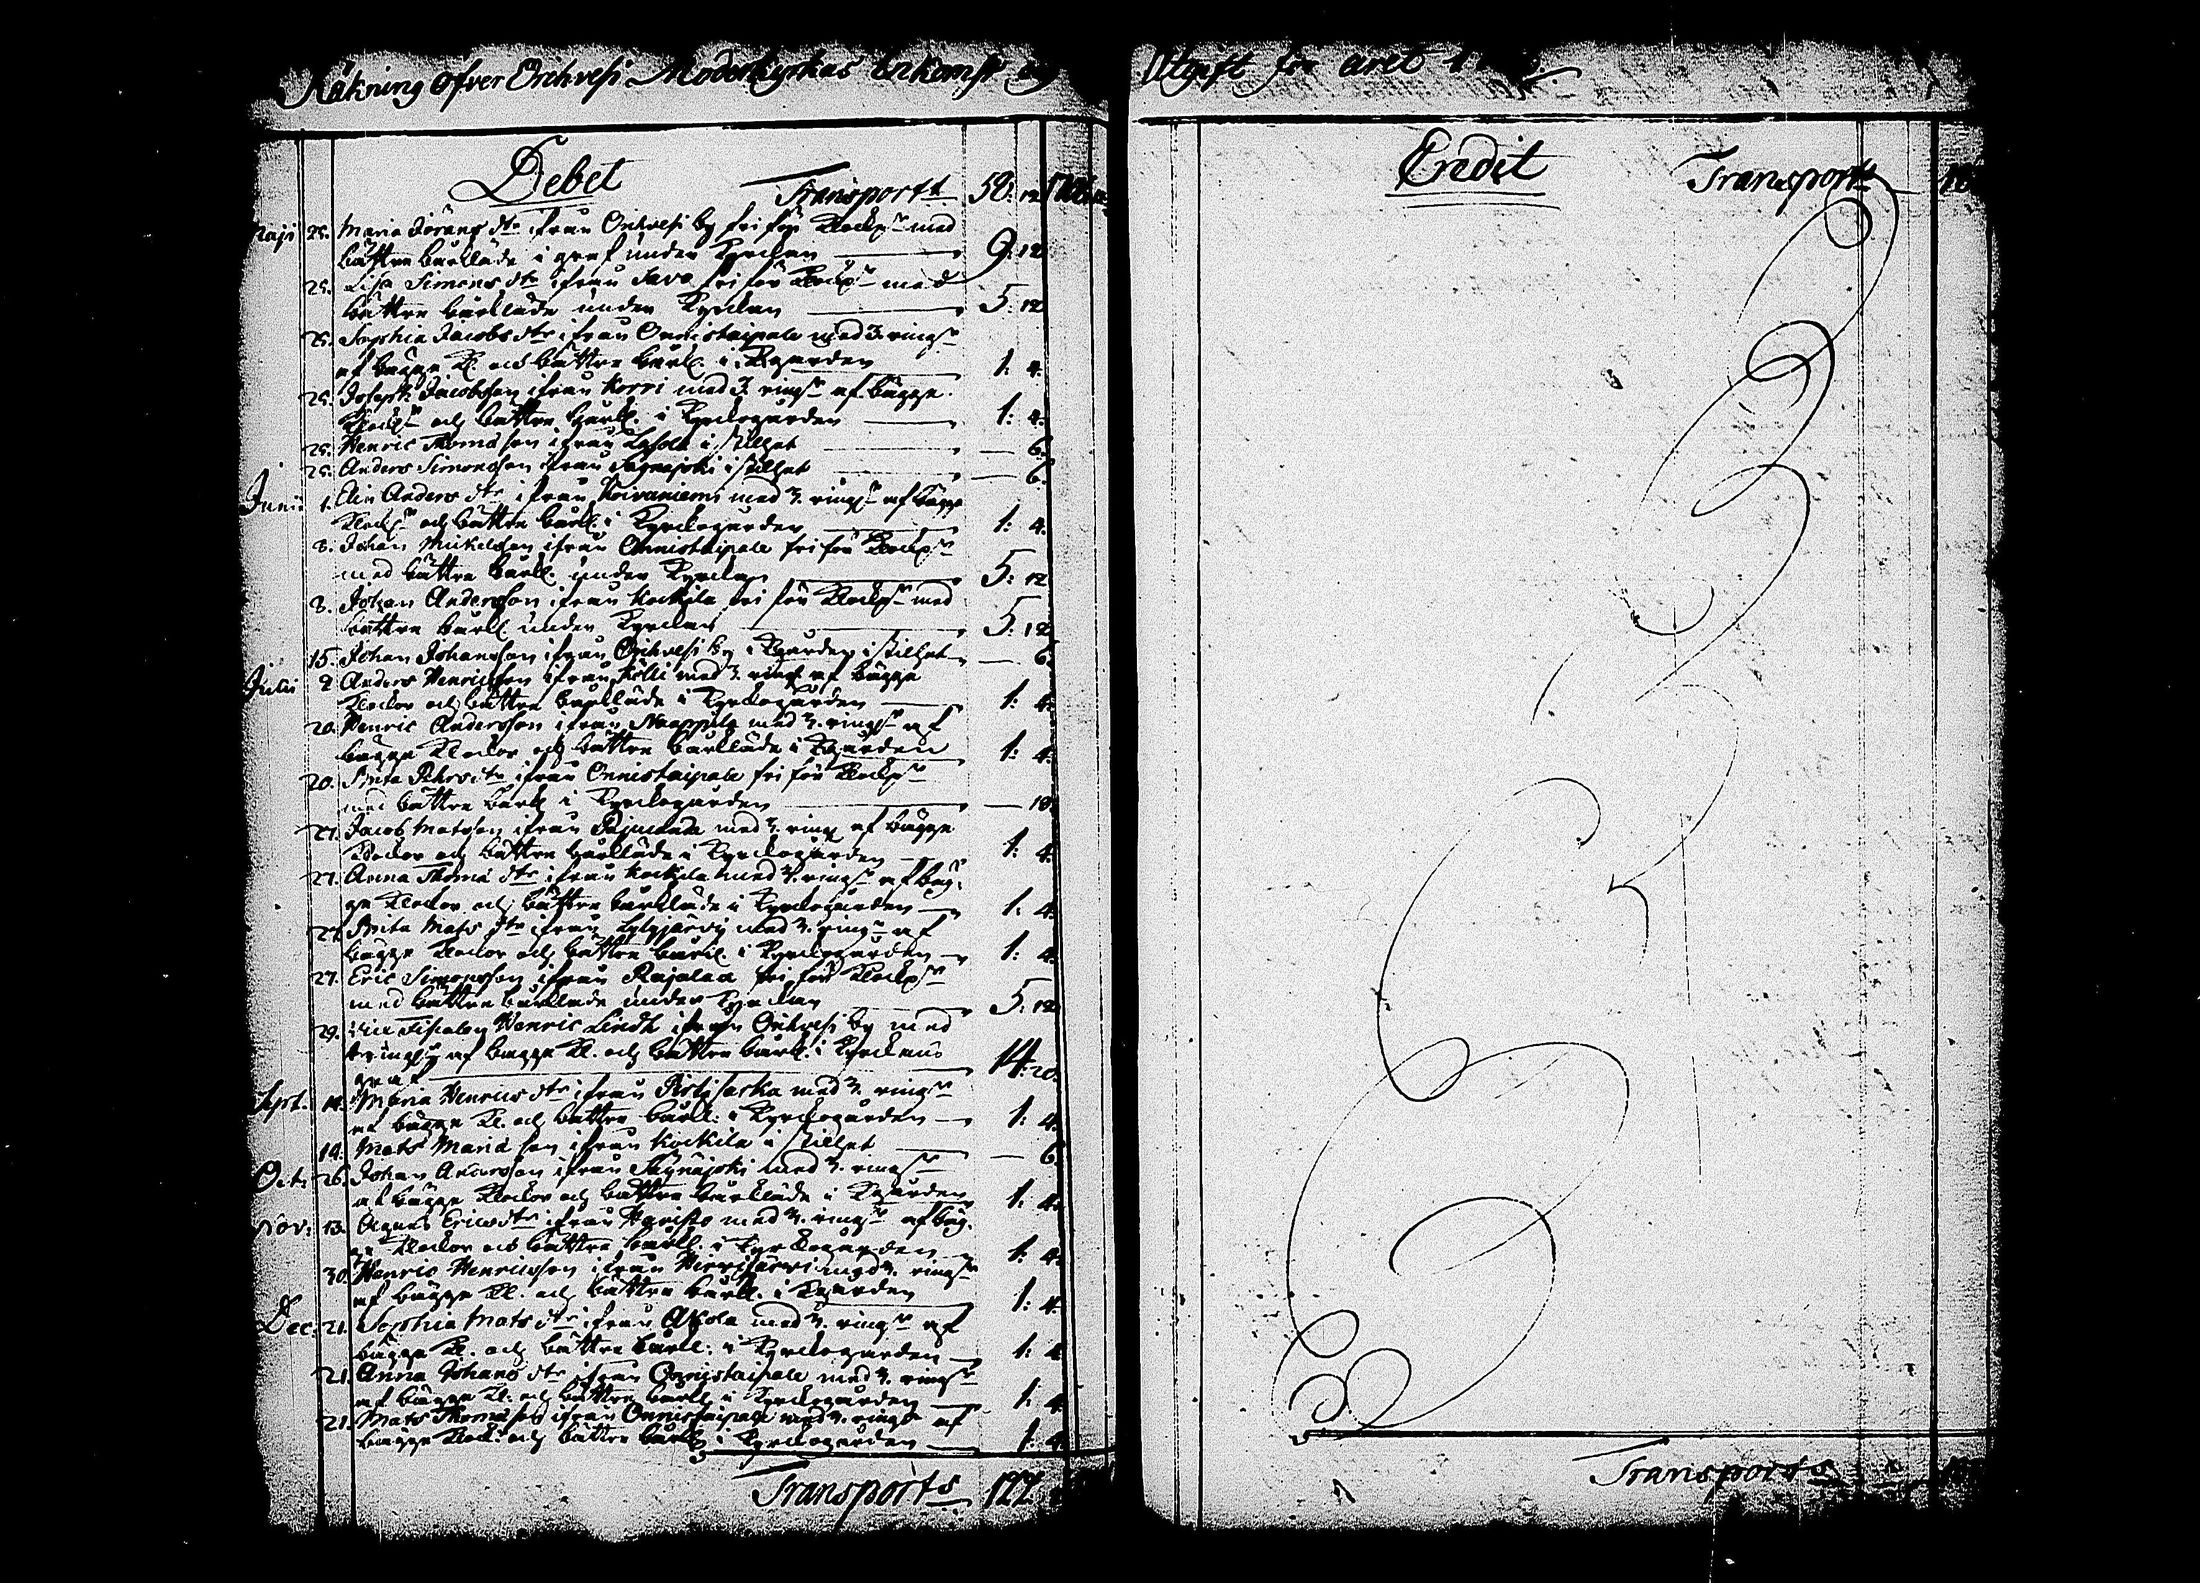 Räkning öfver Orihvesi Moderkyrkas Inkomst och
Debet
Transport 58: 12
Maji 25. Maria Jörans dtr ifrån Orihvesi by fri för Klockpr med
bättre bårkläde i graf under Kyrckan 9: 12
25. Lisa Simons dtr ifrån Savo fri för Klockpr med
bättre bårkläde under Kyrckan 5: 12
25. Sophia Jacobs dtr ifrån Onnistaipale med 3. ringr
af bägge Kl. och bättre bårkl. i Kgården 1: 4.
25. Joseph Jacobsson ifrån Korri med 3. ringr af bägge
Klockr och bättre bårkl. i Kyrckogården 1: 4.
25. Henric Thomasson ifrån i stillhet 6.
25. Anders Simonsson ifrån Säynäjoki i stillhet 6.
Junii 1. Elin Anders dtr ifrån Koivaniemi med 3. ringr af bägge
Klockr och bättre bårkl. i Kyrckogården 1: 4.
8. Johan Mickelsson ifrån Onnistaipale fri för Klockpr
med bättre bårkl. under Kyrckan 5: 12
8. Johan Andersson ifrån Kockila fri för Klockpr med
bättre bårkl under Kyrckan 5: 12
15. Johan Johansson ifrån Orihvesi by i Kgården i stillhet 6.
Julii 2. Anders Henricsson ifrån Kölli med 3. ringr af bägge
Klockor och bättre bårkläde i Kyrckogården 1: 4.
20. Henric Andersson ifrån Naappila med 3. ringr af
bägge Klockor och bättre bårkläde i Kgården 1: 4.
20. Brita Pehrs dtr ifrån Onnistaipale fri för Klockpr
med bättre bårkl i Kyrckogården 18.
27. Jacob Matsson ifrån Pajukanda med 3. ringr af bägge
Klockor och bättre bårkläde i Kyrckogården 1: 4.
27. Anna Thomæ dtr ifrån Kockila med 3. ringr af bäg-
ge Klockor och bättre bårkläde i Kyrckogården 1: 4.
27. Brita Mats dtr ifrån Lylyjärvy med 3. ringr af
bägge Klockor och bättre bårkl. i Kyrckogården 1: 4.
27. Eric Simonsson ifrån Rajalaa fri för Klockpr
med bättre bårkläde under Kyrckan 5: 12
29. Henric Lindh ifrån Orihvesi by med
ringr af bägge Kl. och bättre bårkl. i Kyrckans
graf 14: 20.
Sept. 14. Maria Henrics dtr ifrån med 3. ringr
af bägge Kl. och bättre bårkl. i Kyrckogården 1: 4.
14. Mats Mariæ son ifrån Kockila i stillhet 6.
Oct: 26. Johan Andersson ifrån Säynäjoki med 3. ringr
af bägge Klockor och bättre bårkläde i Kgården 1: 4.
Nov: 13. Agnes Erics dtr ifrån Haavisto med 3. ringr af bäg-
ge Klockor och bättre bårkl. i Kyrckogården 1: 4.
30. Henric Henricsson ifrån Hirvijärvi med 3. ringr
af bägge Kl. och bättre bårkl. i Kgården 1: 4.
Dec: 21. Sophia Mats dtr ifrån med 3. ringr af
bägge Kl. och bättre bårkl. i Kyrckogården 1: 4
21. Anna Johans dtr ifrån Onnistaipale med 3. ringr
af bägge Kl. och bättre bårkl i Kyrckogården 1: 4
21. Mats Thomasson ifrån Onnistaipale med 3. ringr af
bägge Klock: och bättre bårkl i Kyrckogården 1: 4.
Transport 122
Utgift för året 1
Credit
Transport
Transport